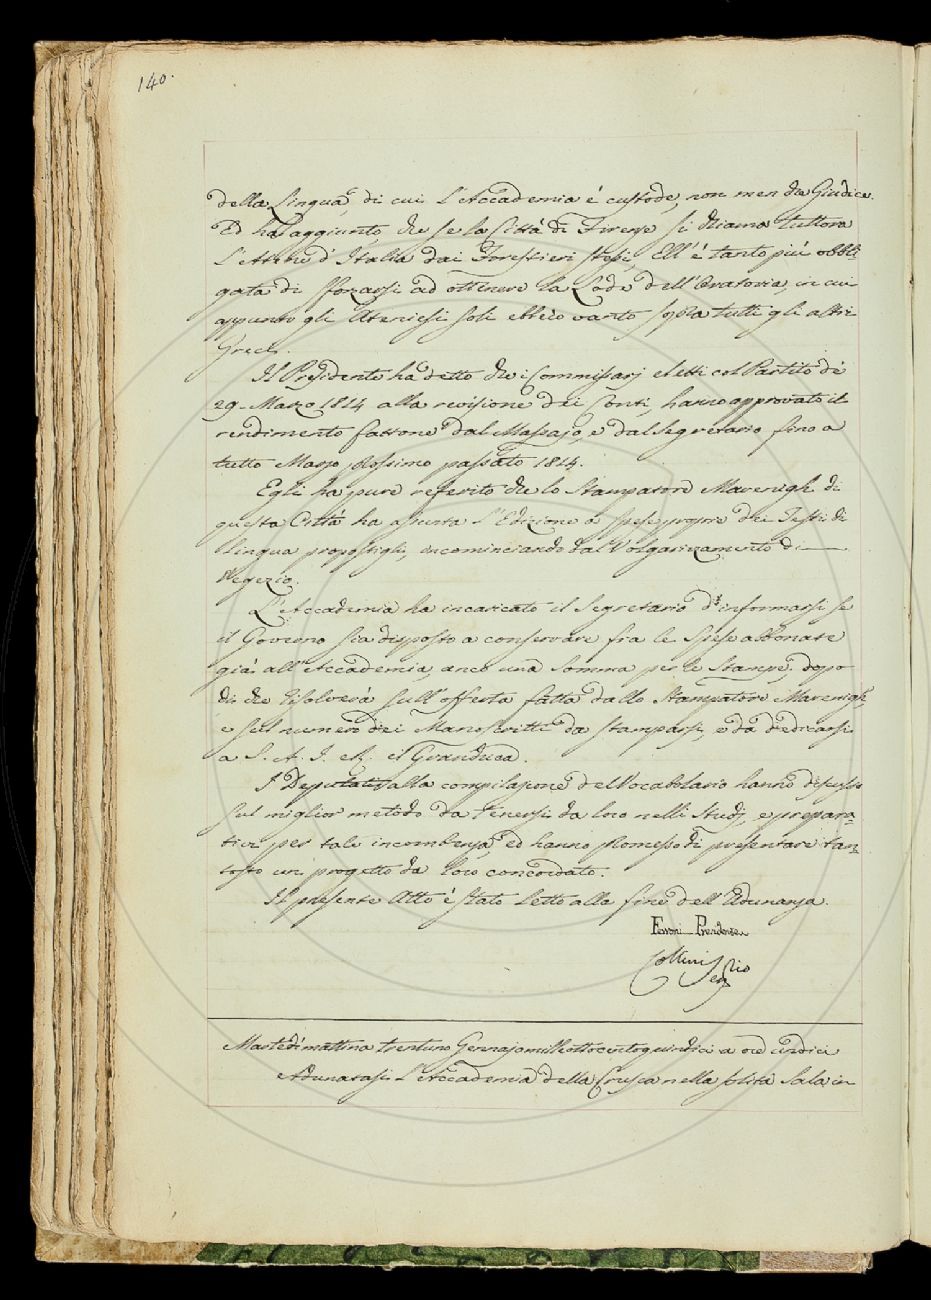 140.
della Lingua, di cui l'Accademia é custode, non men che Giudice.
Ed ha aggiunto, che se la Cittá di Firenze si chiama tuttora
l'Atene d'Italia dai Forestieri stessi, Ell'é tanto piú obbli-
gata di sforzarsi ad ottenere la Lode dell'Oratoria, in cui
appunto gli Ateniesi soli ebbero vanto sopra tutti gli altri
Greci.
Il Presidente ha detto che i Commissarj eletti col Partito de'
29. Marzo 1814 alla revisione dei Conti, hanno approvato il
rendimento fattone dal Massajo, e dal Segretario fino a
tutto Marzo prossimo passato 1814.
Egli ha pure referito che lo Stampatore Marenigh di
questa Cittá ha assunta l'Edizione a spese proprie dei Testi di
Lingua propostigli, incominciando dal Volgarizzamento di
Vegezio.
L'Accademia ha incaricato il Segretario d'informarsi se
il Governo sia disposto a conservare fra le Spese abbonate
giá all'Accademia, anco una somma per le Stampe, dopo
di che risolverá sull'offerta fatta dallo Stampatore Marenigh,
e sul numero dei Manoscritti da stamparsi, e da dedicarsi
a S. A. I. e R. il Granduca.
I Deputati alla compilazione del Vocabolario hanno discusso
sul miglior metodo da tenersi da loro nelli Studj, e prepara-
tivi per tale incombenza, ed hanno promesso di presentare tan-
tosto un progetto da loro concordato.
Il presente Atto é stato letto alla fine dell'Adunanza.
Ferroni Presidente
Collini Segrio
Martedí mattina trentuno Gennajo mille ottocento quindici a ore undici
Adunatasi l'Accademia della Crusca nella solita Sala in